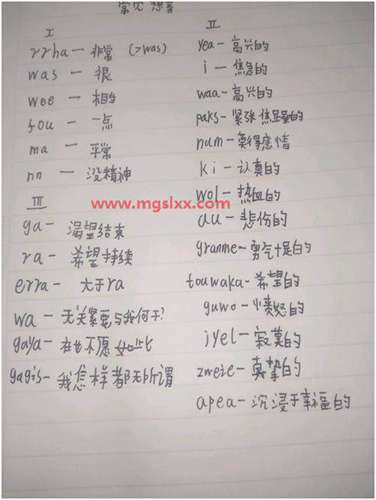 常见想音
I
rrha — 非常 (>was)
was — 很
wee — 相当
fou — 一点
ma — 平常
nn — 没精神
III
ga — 渴望结束
ra — 希望持续
erra — 大于ra
wa — 无关紧要与我何干?
gaya — 在也不愿如此
gagis — 我怎样都无所谓
II
yea — 高兴的
i — 焦急的
waa — 高兴的
paks — 紧张
num — 莫得感情
ki — 认真的
wol — 热血的
au — 悲伤的
granme — 勇气十足的
touwaka — 希望的
guwo — 愤怒的
jyel — 寂寞的
zweie — 真挚的
apea — 沉浸于幸福的
www.mgslxx.com